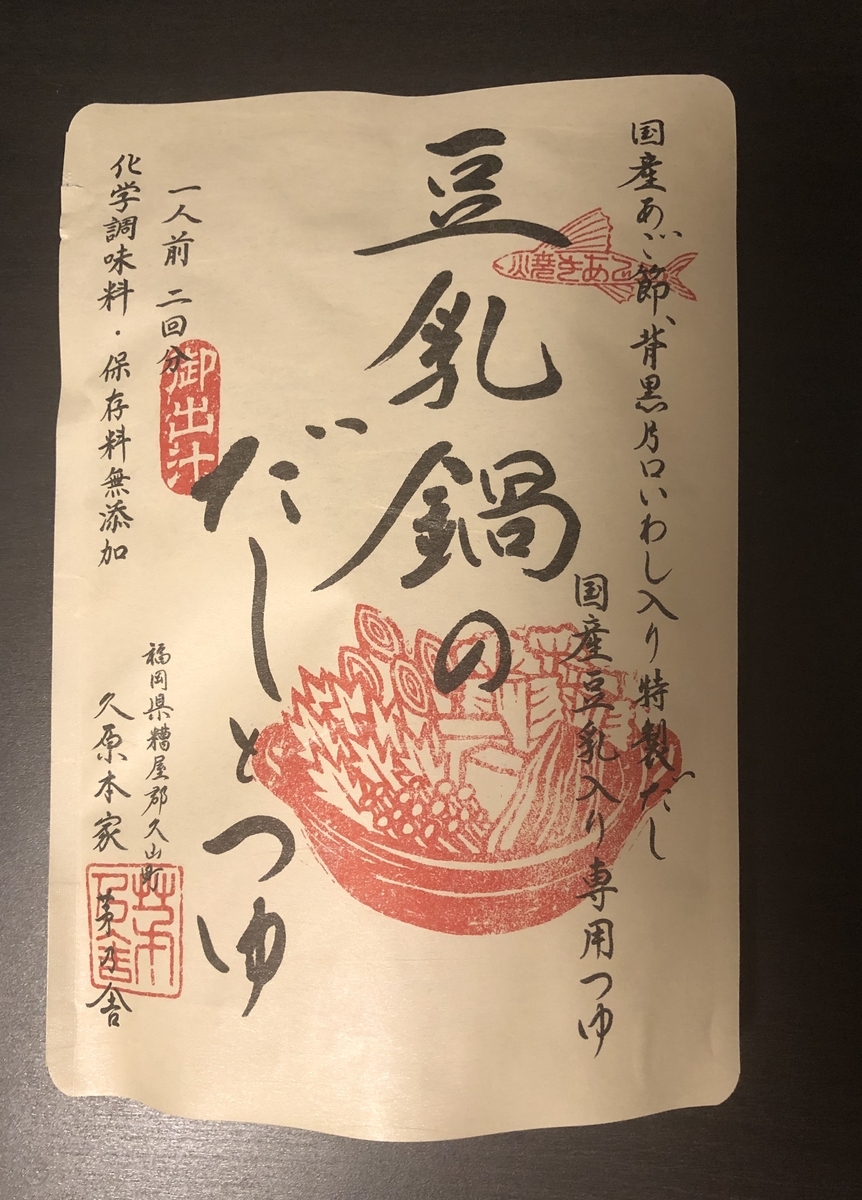 国産あご節、背黒片口いわし入り 特製だし
国産豆乳入り 専用つゆ
焼きあご
豆乳鍋の
だしとつゆ
御出汁
一人前 二回分
化学調味料・保存料無添加
福岡県糟屋郡久山町
久原本家 茅乃舎